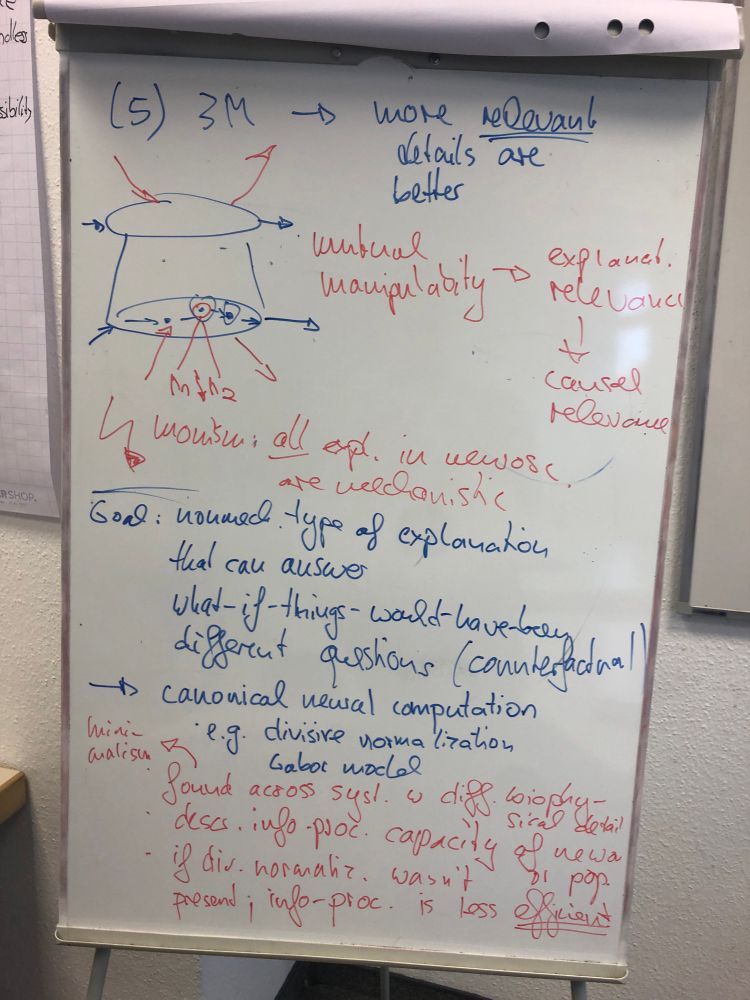 ndless
ssibility
(5) 3M → more relevant
details are
better
mutual
manipulabity → explanat.
relevance
↓
causal
relevance
monism: all expl. in neurosc.
are mechanistic
Goal: nonmech. type of explanation
that can answer
what-if-things-would-have-been
different questions (counterfactual)
→ canonical neural computation
e.g. divisive normalization
Gabor model
mini-
malism
· found across syst. w diff. biophy-
sical detail
· descr. info-proc. capacity of neuro
or pop.
· if div. normaliz. wasn't
present; info-proc. is less efficient
RSHOP.